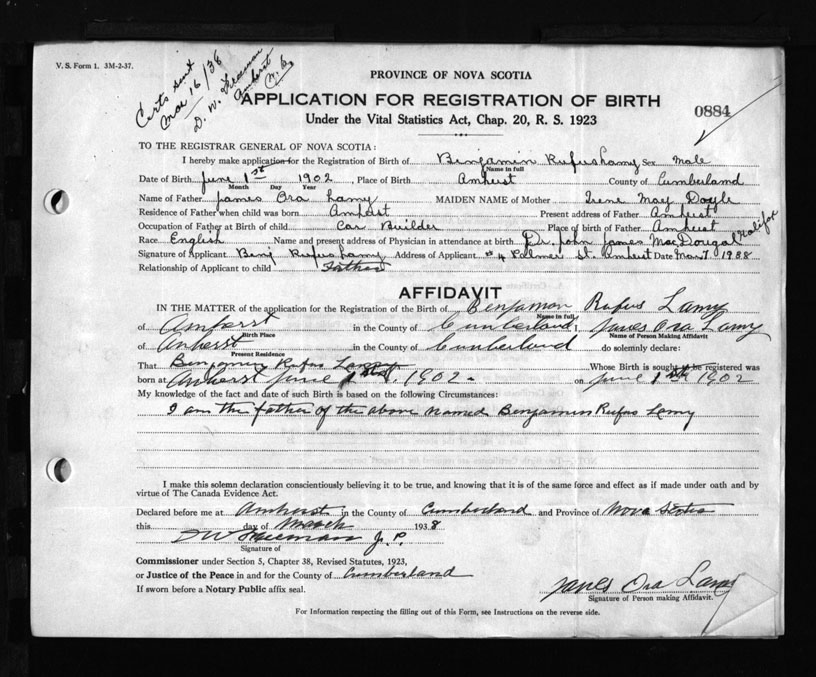 V. S. Form 1. 3M-2-37.
Certs sent
Mar 16/38
D. W. Freeman
Amherst
N. S.
PROVINCE OF NOVA SCOTIA
APPLICATION FOR REGISTRATION OF BIRTH
0884
Under the Vital Statistics Act, Chap. 20, R. S. 1923
TO THE REGISTRAR GENERAL OF NOVA SCOTIA:
I hereby make application for the Registration of Birth of Benjamin Rufus Lamy Sex Male
Name in full
Date of Birth June 1st 1902, Place of Birth Amherst County of Cumberland
Month Day Year
Name of Father James Ora Lamy MAIDEN NAME of Mother Irene May Doyle
Residence of Father when child was born Amherst Present address of Father Amherst
Occupation of Father at Birth of child Car Builder Place of birth of Father Amherst
Race English Name and present address of Physician in attendance at birth Dr. John James MacDougal Halifax
Signature of Applicant Benj Rufus Lamy Address of Applicant #4 Palmer St. Amherst Date Mar 7 1938
Relationship of Applicant to child Father
AFFIDAVIT
IN THE MATTER of the application for the Registration of the Birth of Benjamon Rufus Lamy
Name in full
of Amherst in the County of Cumberland I, James Ora Lamy
Birth Place Name of Person Making Affidavit
of Amherst in the County of Cumberland do solemnly declare:
Present Residence
That Benjamin Rufus Lamy Whose Birth is sought to be registered was
born at Amherst June 1st, 1902. on June 1st 1902
My knowledge of the fact and date of such Birth is based on the following Circumstances:
I am the father of the above named Benjamin Rufus Lamy
I make this solemn declaration conscientiously believing it to be true, and knowing that it is of the same force and effect as if made under oath and by
virtue of The Canada Evidence Act.
Declared before me at Amherst in the County of Cumberland and Province of Nova Scotia
this day of March 1938
D W Freeman J. P.
Signature of
Commissioner under Section 5, Chapter 38, Revised Statutes, 1923,
or Justice of the Peace in and for the County of Cumberland
If sworn before a Notary Public affix seal.
James Ora Lamy
Signature of Person making Affidavit.
For Information respecting the filling out of this Form, see Instructions on the reverse side.